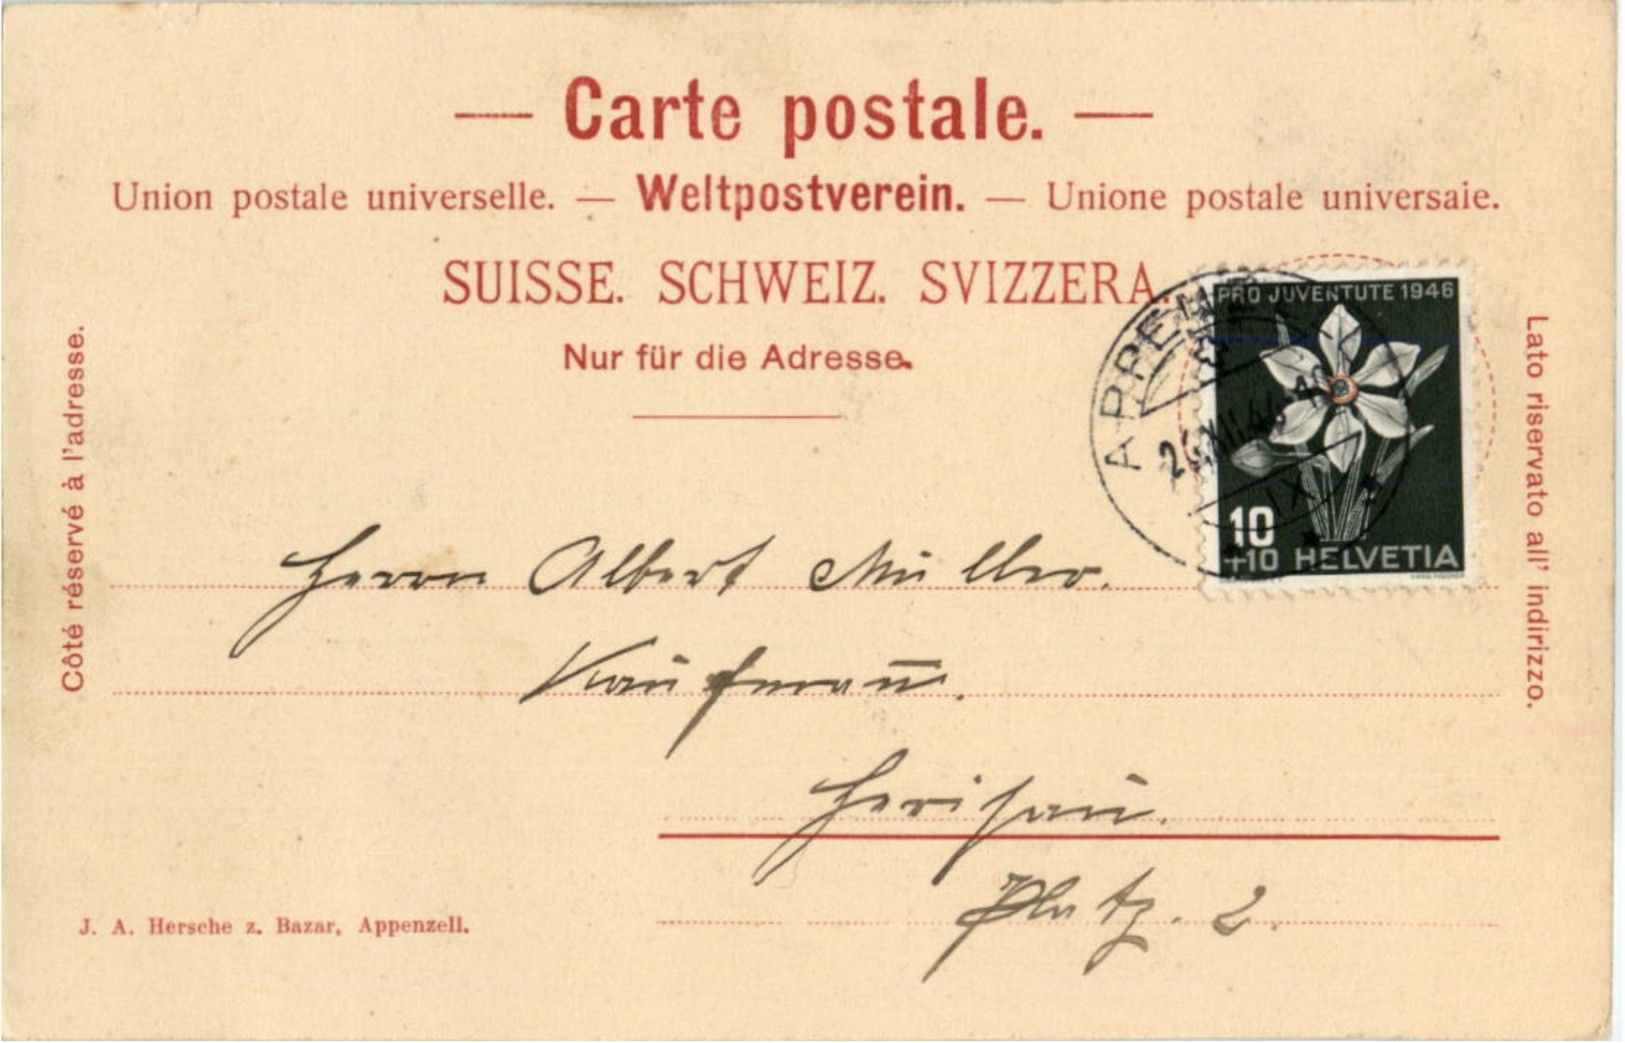 — Carte postale. —
Union postale universelle. — Weltpostverein. — Unione postale universaie.
SUISSE. SCHWEIZ. SVIZZERA.
Nur für die Adresse.
Côté réservé à l'adresse.
Lato riservato all' indirizzo.
PRO JUVENTUTE 1946
10
+10 HELVETIA
IX
Herrn Albert Müller.
Kaufmann.
Herisau.
Platz. 2.
J. A. Hersche z. Bazar, Appenzell.